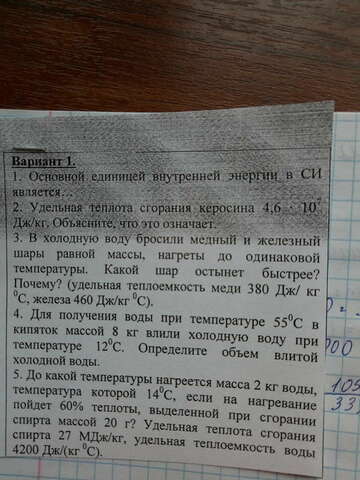 Вариант 1.
1. Основной единицей внутренней энергии в СИ
является…
2. Удельная теплота сгорания керосина 4,6 · 10⁷
Дж/кг. Объясните, что это означает.
3. В холодную воду бросили медный и железный
шары равной массы, нагреты до одинаковой
температуры. Какой шар остынет быстрее?
Почему? (удельная теплоемкость меди 380 Дж/ кг
⁰С, железа 460 Дж/кг ⁰С).
4. Для получения воды при температуре 55⁰С в
кипяток массой 8 кг влили холодную воду при
температуре 12⁰С. Определите объем влитой
холодной воды.
5. До какой температуры нагреется масса 2 кг воды,
температура которой 14⁰С, если на нагревание
пойдет 60% теплоты, выделенной при сгорании
спирта массой 20 г? Удельная теплота сгорания
спирта 27 МДж/кг, удельная теплоемкость воды
4200 Дж/(кг ⁰С).